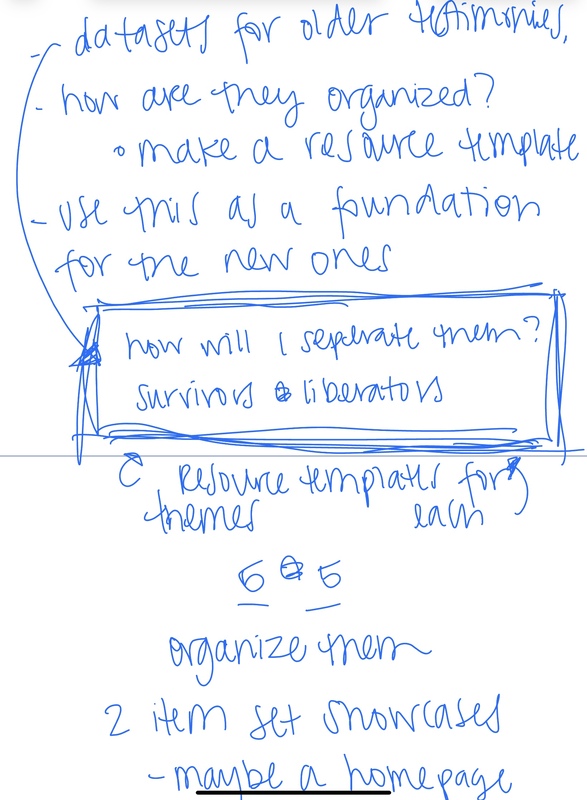 - datasets for older testimonies,
- how are they organized?
◦ make a resource template
- use this as a foundation
for the new ones
how will I seperate them?
survivors & liberators
resource templates for
themes each
5 & 5
organize them
2 item set showcases
- maybe a homepage